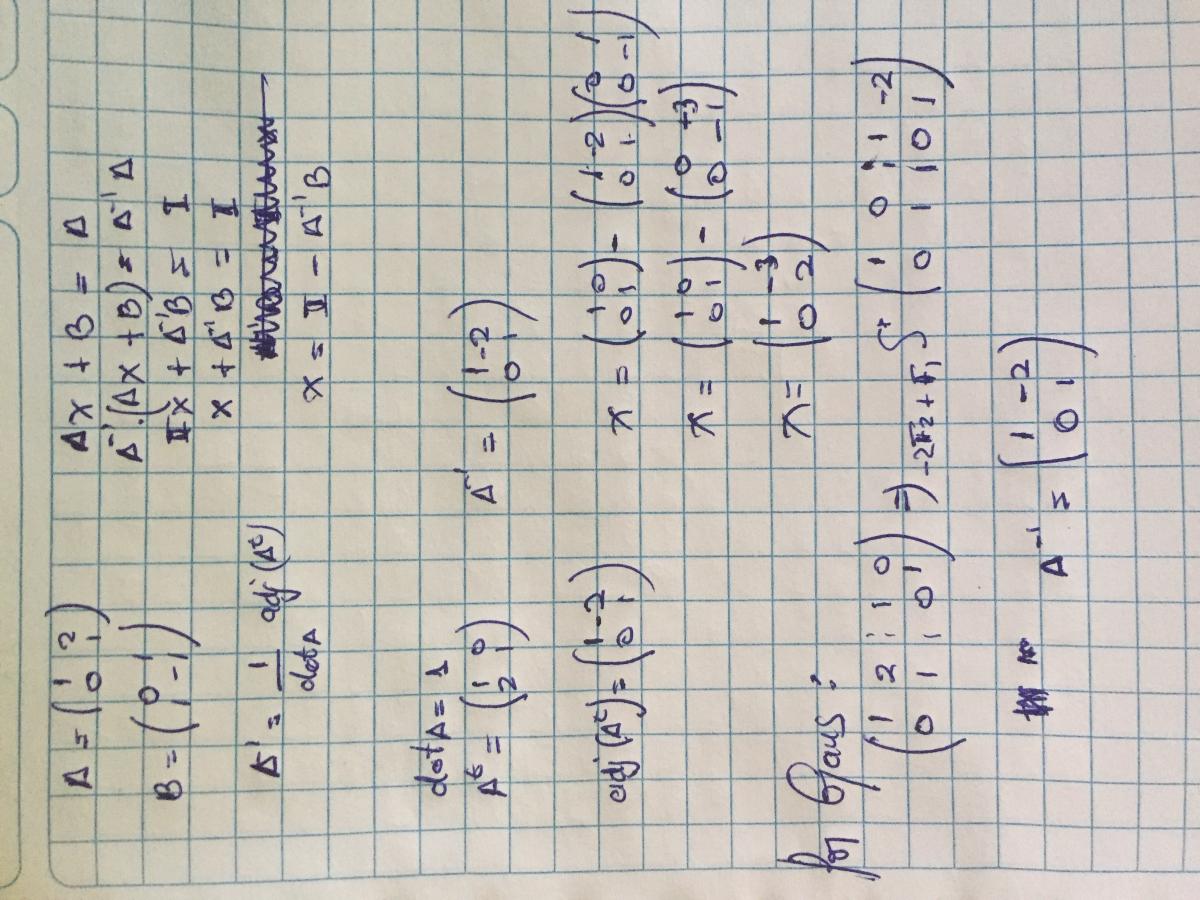 A = (1 2
0 1)
B = (0 1
1 -1)
A⁻¹ = 1/det A adj (Aᵗ)
det A = 1
Aᵗ = (1 0
2 1)
adj (Aᵗ) = (1 -2
0 1)
AX + B = A
A⁻¹·(AX + B) = A⁻¹ A
IX + A⁻¹B = I
X + A⁻¹B = I
X = I - A⁻¹B
A⁻¹ = (1 -2
0 1)
X = (1 0
0 1) - (1 -2
0 1)(0 1
0 -1)
X = (1 0
0 1) - (0 +3
0 -1)
X = (1 -3
0 2)
por Gaus:
(1 2 | 1 0
0 1 | 0 1) => -2F₂ + F₁ (1 0 | 1 -2
0 1 | 0 1)
A⁻¹ = (1 -2
0 1)